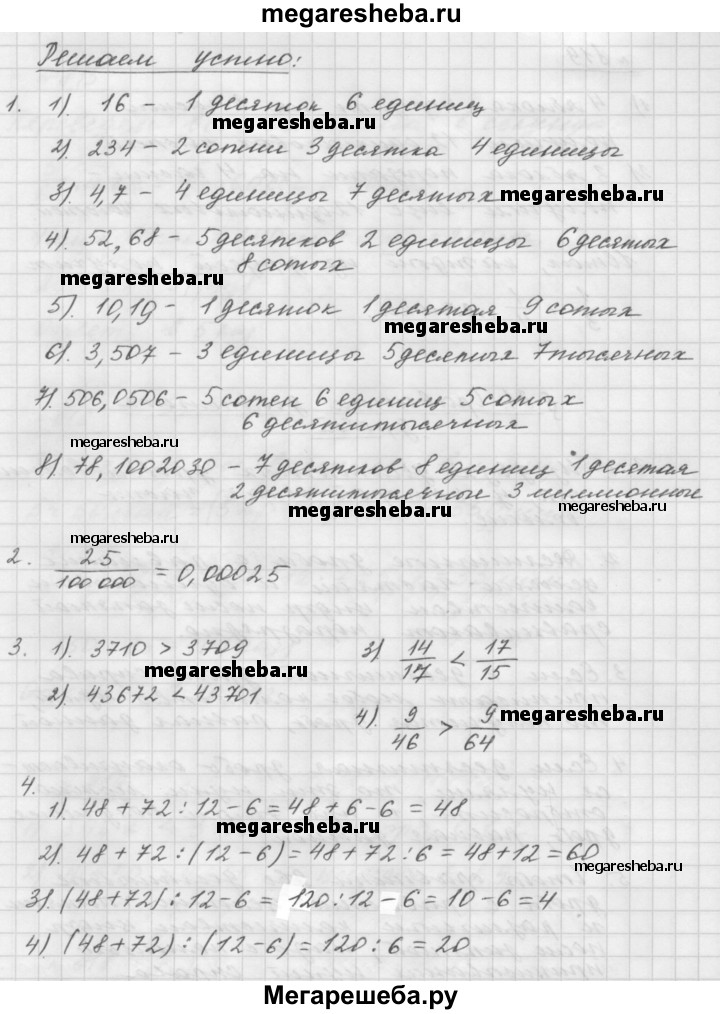 megaresheba.ru
Решаем устно:
1. 1) 16 - 1 десяток 6 единиц
megaresheba.ru
2) 234 - 2 сотни 3 десятка 4 единицы
3) 4,7 - 4 единицы 7 десятых megaresheba.ru
4) 52,68 - 5 десятков 2 единицы 6 десятых
8 сотых
megaresheba.ru
5) 10,19 - 1 десяток 1 десятая 9 сотых
megaresheba.ru
6) 3,507 - 3 единицы 5 десятых 7 тысячных
7) 506,0506 - 5 сотен 6 единиц 5 сотых
6 десятитысячных
megaresheba.ru
8) 78,1002030 - 7 десятков 8 единиц 1 десятая
2 десятитысячные 3 миллионные
megaresheba.ru
megaresheba.ru
2. 25/100 000 = 0,00025
3. 1) 3710 > 3709
3) 14/17 < 17/15
megaresheba.ru
2) 43672 < 43701
4) 9/46 > 9/64
megaresheba.ru
4.
1) 48 + 72 : 12 - 6 = 48 + 6 - 6 = 48
megaresheba.ru
2) 48 + 72 : (12 - 6) = 48 + 72 : 6 = 48 + 12 = 60
megaresheba.ru
3) (48 + 72) : 12 - 6 = 120 : 12 - 6 = 10 - 6 = 4
4) (48 + 72) : (12 - 6) = 120 : 6 = 20
Мегарешеба.ру